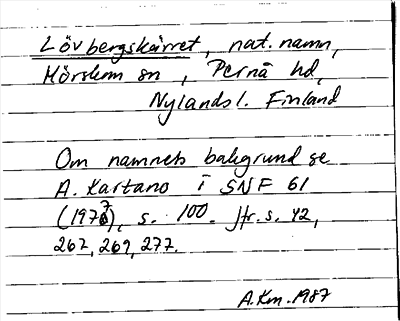 Lövbergskärret, nat.namn,
Mörskom sn, Pernå hd,
Nylands l. Finland
Om namnets bakgrund se
A. Kartano i SNF 61
(1977), s. 100. Jfr. s. 42,
267, 269, 277.
A.Km. 1987